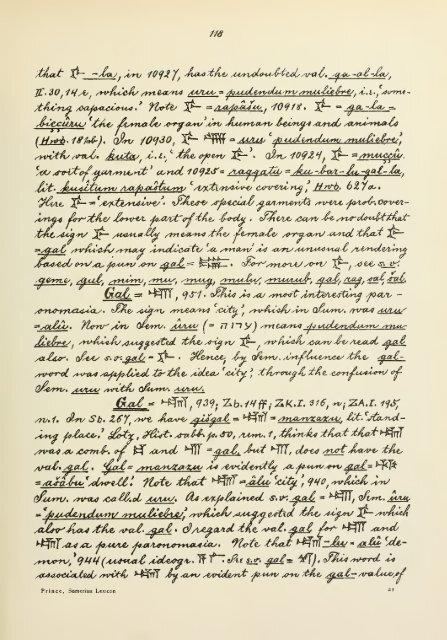 118
that 𒊩-la, in 10927, has the undoubted val. ga-al-la,
II. 30, 14 e, which means uru = pudendum muliebre, i.e., 'some-
thing capacious.' Note = rapâšu, 10918. = ga-la =
biccûru 'the female organ' in human beings and animals
(Hwb. 181ab). In 10930, = uru 'pudendum muliebre,'
with val. kuta, i.e., 'the open'. In 10924, = muccu
'a sort of garment' and 10925 = raggatu = ku-bar-lu-gal-la,
lit. kusîtum rapaštum 'extensive covering,' Hwb 627a.
Here = 'extensive'. These special garments were prob. cover-
ings for the lower part of the body. There can be no doubt that
the sign usually means the female organ and that
= gal which may indicate 'a man' is an unusual rendering
based on a pun on gal = . For more on , see s.v.
geme, gul, mim, mu, mug, mulu, murub, gal, rag, sal, šal.
Gal = , 951. This is a most interesting par-
onomasia. The sign means 'city', which in Sum. was uru
= alu. Now in Sem. ûru (= ) means pudendum mu-
liebre, which suggested the sign , which can be read gal
also. See s.v. gal = . Hence, by Sem. influence the gal-
word was applied to the idea 'city', through the confusion of
Sem. uru with Sum. uru.
Gal = , 939; Zb. 14 ff; ZK. I. 316, n; ZA. I. 195,
n. 1. In Sb. 267, we have gišgal = = manzazu, lit. 'stand-
ing place.' Lotz, Hist. sabb. p. 50, rem. 1, thinks that that
was a comb. of and = gal, but , does not have the
val. gal. Gal = manzazu is evidently a pun on gal =
= ašâbu 'dwell.' Note that = âlu 'city', 940, which in
Sum. was called uru. As explained s.v. gal = , Sem. ûru
= 'pudendum muliebre,' which suggested the sign which
also has the val. gal. I regard the val. gal for and
as a pure paronomasia. Note that -lu = alû 'de-
mon,' 944 (usual ideogr. . See s.v. gal = ). This word is
associated with by an evident pun on the gal-value of
Prince, Sumerian Lexicon